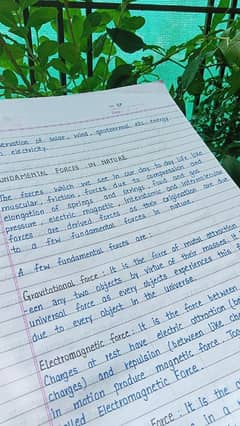 ervation of solar, wind, geothermal etc. energy
electricity.
UNDAMENTAL FORCES IN NATURE
The forces which we see in our day to day life like
muscular, friction, forces due to compression and
elongation of springs and strings, fluid and gas
pressure, electric, magnetic, interatomic and intermolecular
forces are derived forces as their originations are due
to a few fundamental forces in nature.
A few fundamental forces are :
Gravitational force : It is the force of mutual attraction
-een any two objects by virtue of their masses. It
universal force as every objects experiences this
due to every object in the universe.
Electromagnetic force : It is the force between
Charges at rest have electric attraction (be
charges) and repulsion (between like char
in motion produce magnetic force. Toge
lled Electromagnetic Force.
Force : It is the
in a